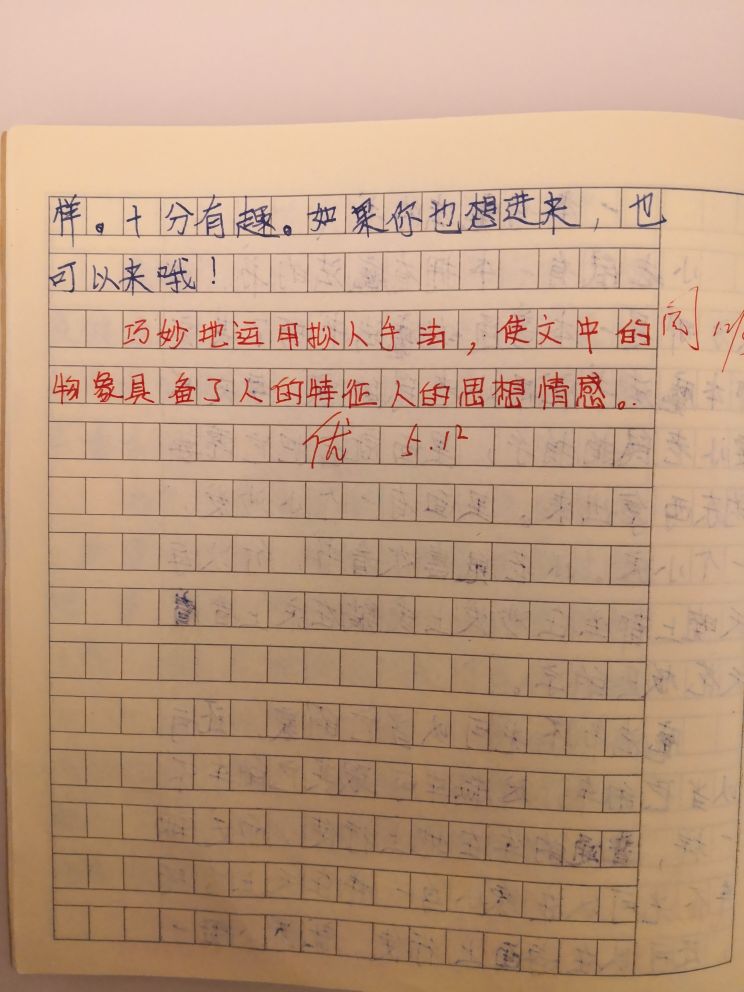 样。十分有趣。如果你也想进来，也
可以来哦！
巧妙地运用拟人手法，使文中的
物象具备了人的特征人的思想情感。
阅 12/5
优 5.12